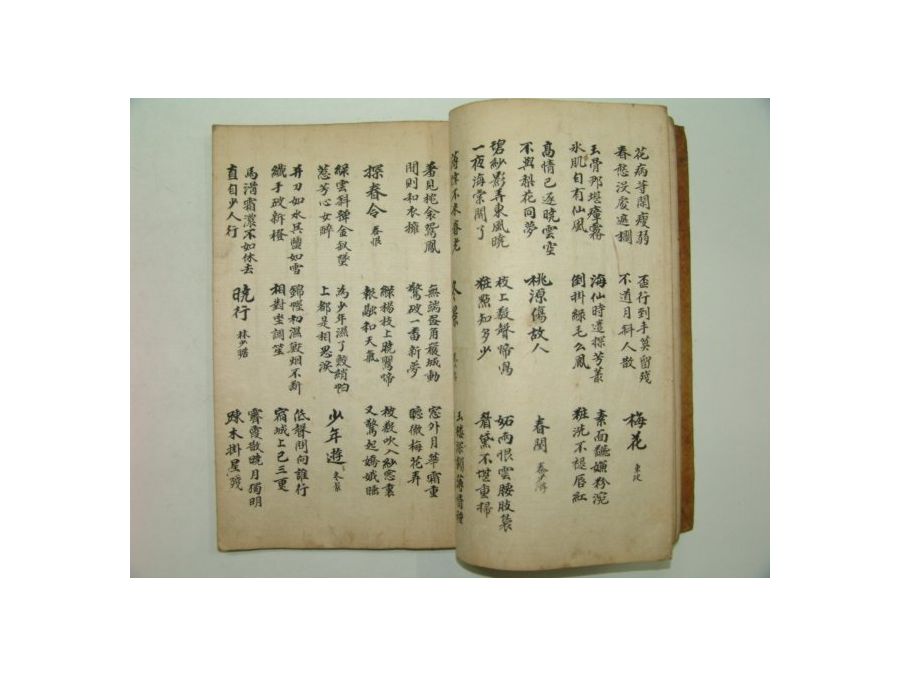 花病等閒瘦弱
春愁沒處遮攔
盃行到手莫留殘
不道月斜人散
梅花 東坡
玉骨那堪瘴霧
氷肌自有仙風
海仙時遣探芳叢
倒掛綠毛么鳳
素面飜嫌粉涴
粧洗不褪唇紅
高情已逐曉雲空
不與梨花同夢
桃源傷故人
春閨 秦少游
碧紗影弄東風曉
一夜海棠開了
枝上數聲啼鳥
粧點知多少
妬雨恨雲腰肢裊
眉黛不堪重掃
薄倖不來春老
冬景
玉樓深鎖薄情種
著見枕衾鴛鳳
悶則和衣擁
無端畫角嚴城動
驚破一番新夢
窓外月華霜重
聽徹梅花弄
探春令 春恨
綠楊枝上曉鶯啼
報融和天氣
被數吹入紗窓裏
又驚起嬌娥睡
綠雲斜嚲金釵墜
惹芳心如醉
為少年濕了鮫綃帕
上都是相思淚
少年遊 冬景
并刀如水吳鹽如雪
纖手破新橙
錦幄初濕獸烟不斷
相對坐調笙
低聲問向誰行
宿城上已三更
馬滑霜濃不如休去
直自少人行
曉行 林少瞻
霽霞散曉月獨明
疎木掛星殘